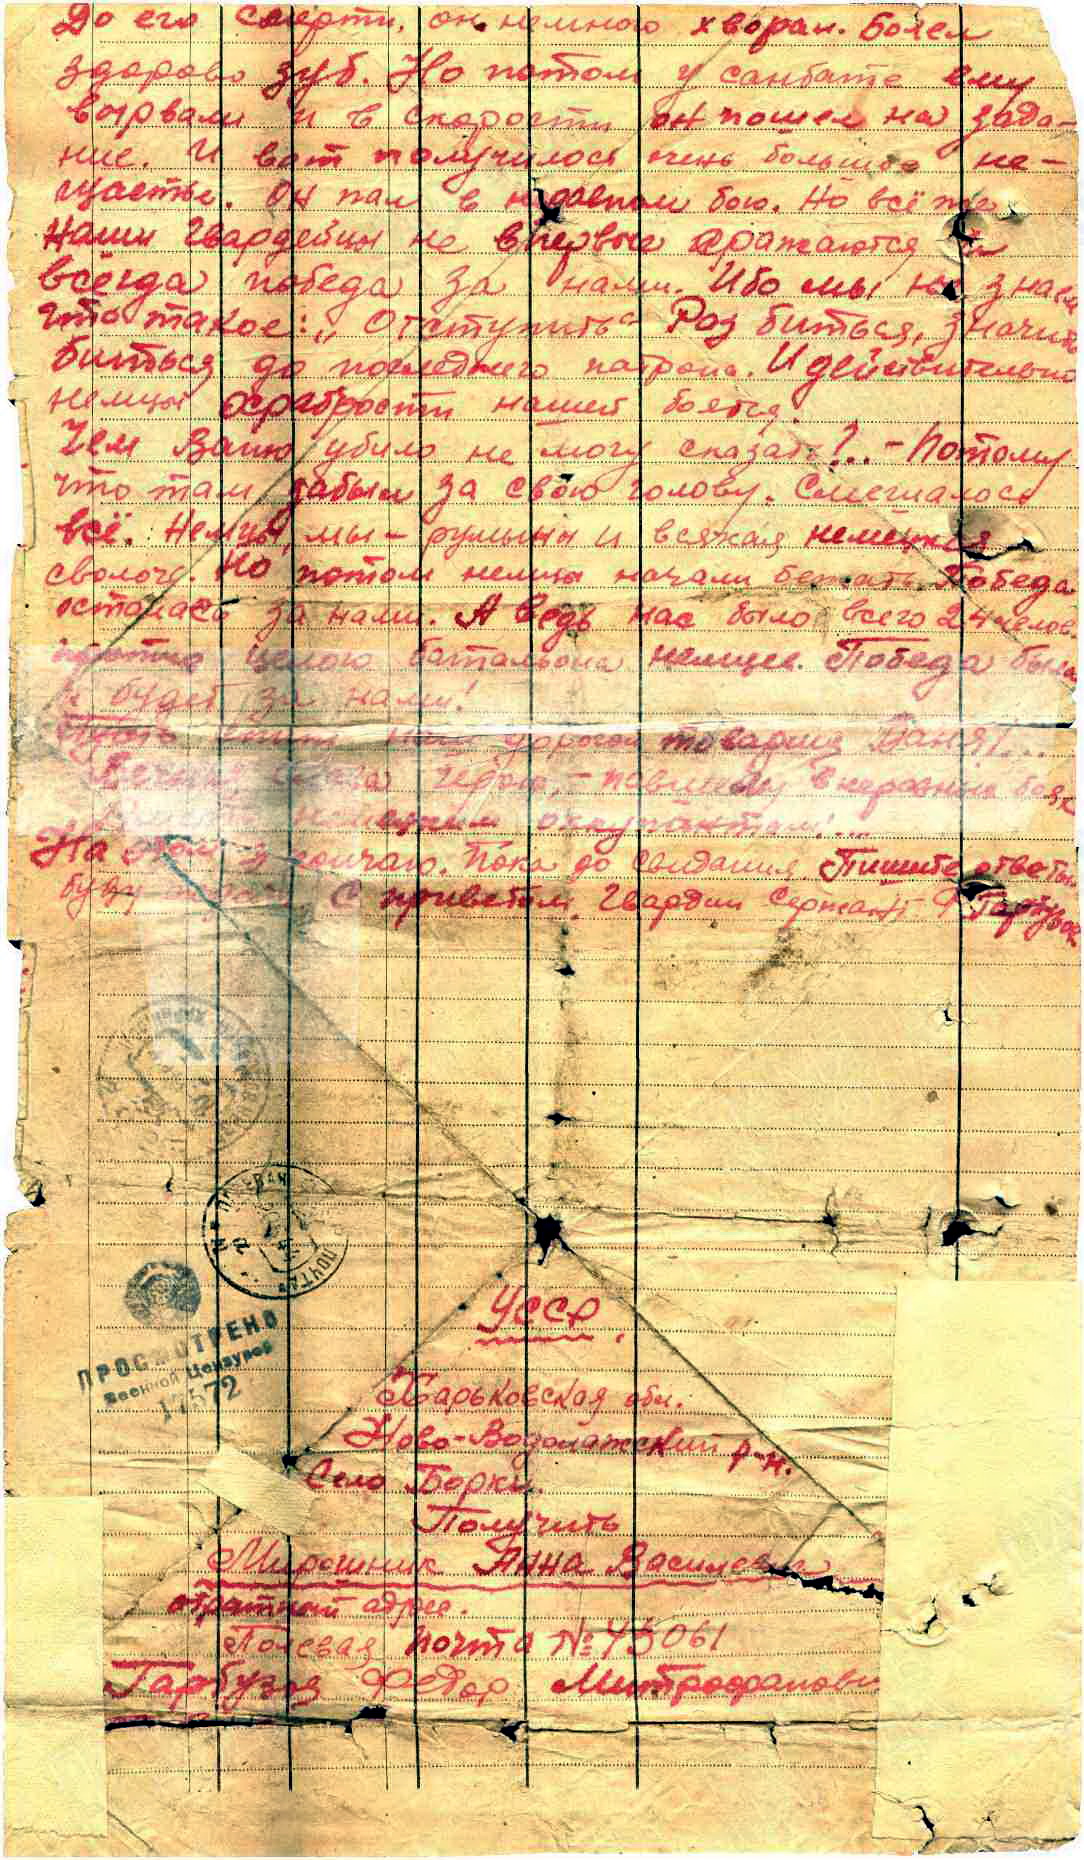 До его смерти, он немного хворал. Болел
здорово зуб. Но потом у санбате ему
вырвали и в скорости он пошел на зада-
ние. И вот получилося очень большое не-
счастье. Он пал в бою. Но всё же
Наши Гвардейцы не впервые сражаются и
всегда победа за нами. Ибо мы не знаем
что такое: „Отступить“ Раз биться, значить
биться до последнего патрона. И действительно
немцы храбрости нашей боятся.
Чем Ваню убило не могу сказать?.. – Потому
что там забыл за свою голову. Смешалося
всё. Немцы, мы – румыны и всякая немецкая
сволочь. Но потом немцы начали бежать Победа
осталась за нами. А ведь нас было всего 24 челов.
против целого батальона немцев. Победа была
и будет за нами!
наш дорогой товарищ Ваня!...
Вечная слава Герою, – павшему в неравном бою,
немецким оккупантам!...
На этом я кончаю. Пока до свидания. Пишите ответ
буду С приветом Гвардии Сержант Ф Гарбузов
ПОЛЕВАЯ ПОЧТА
ПРОСМОТРЕНО
Военной Цензурой
УССР.
Харьковская обл.
Ново-Водолажский р-н.
Село Борки.
Получить
Мирошник Анна Василевна
обратный адрес.
Полевая почта №
Гарбузов Федор Митрофанович